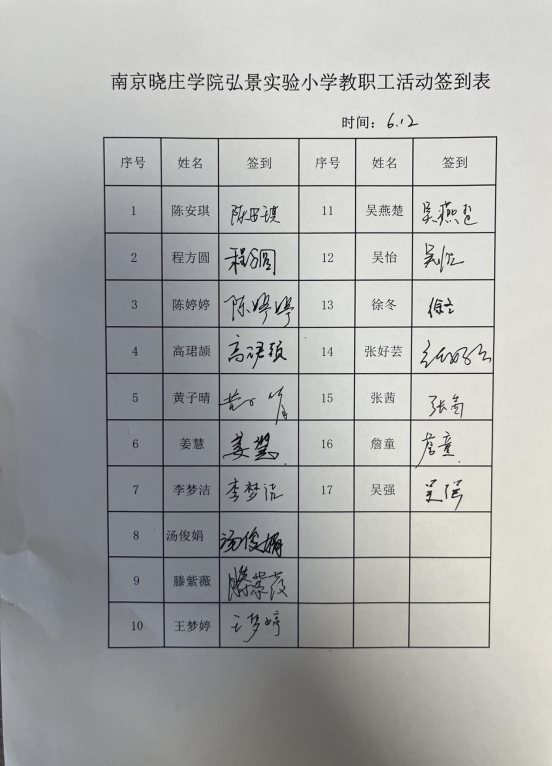 南京晓庄学院弘景实验小学教职工活动签到表
时间：6.12
序号 姓名 签到 序号 姓名 签到
1 陈安琪 陈安琪 11 吴燕楚 吴燕楚
2 程方圆 程方圆 12 吴怡 吴怡
3 陈婷婷 陈婷婷 13 徐冬 徐冬
4 高珺颉 高珺颉 14 张好芸 张好芸
5 黄子晴 黄子晴 15 张茜 张茜
6 姜慧 姜慧 16 詹童 詹童
7 李梦洁 李梦洁 17 吴强 吴强
8 汤俊娟 汤俊娟
9 滕紫薇 滕紫薇
10 王梦婷 王梦婷